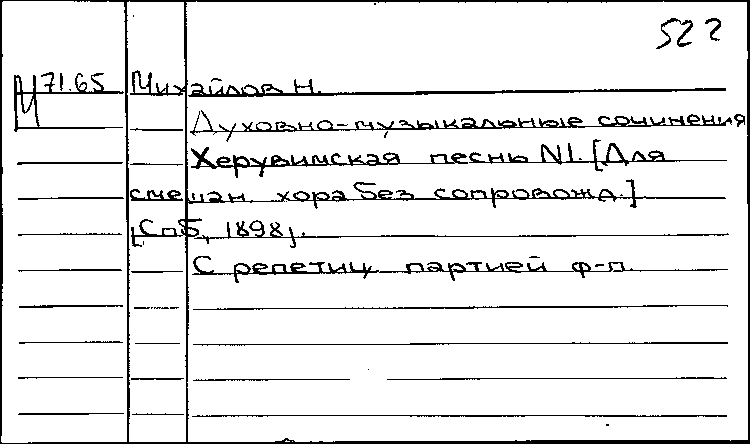 522
М 71.65 Михайлов Н.
Духовно-музыкальные сочинения
Херувимская песнь N1. [Для
смешан. хора без сопровожд.]
[Спб, 1898].
С репетиц. партией ф-п.